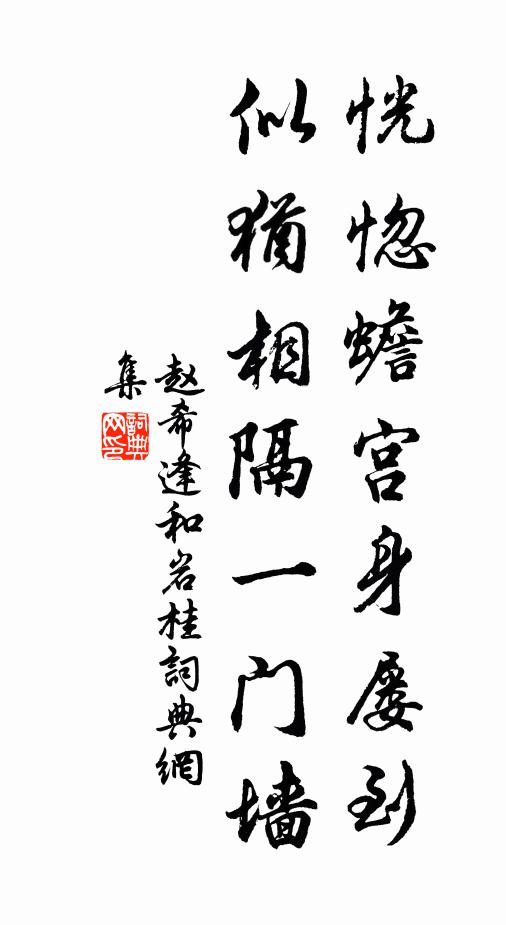 恍惚蟾宫身屡到
似犹相隔一门墙
赵希逢和岩桂詞典網
集
詞典
网印